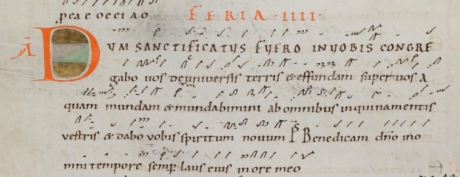 pea e oeci a o FERIA IIII·
A DUM SANCTIFICATUS FUERO IN UOBIS CONGRE
gabo uos deuniuersis terris & effundam super uos a
quam mundam & mundabimini ab omnibus inquinamentis
uestris & dabo uobis spiritum nouum Ps Benedicam dno in o
mni tempore semp laus eius in ore meo